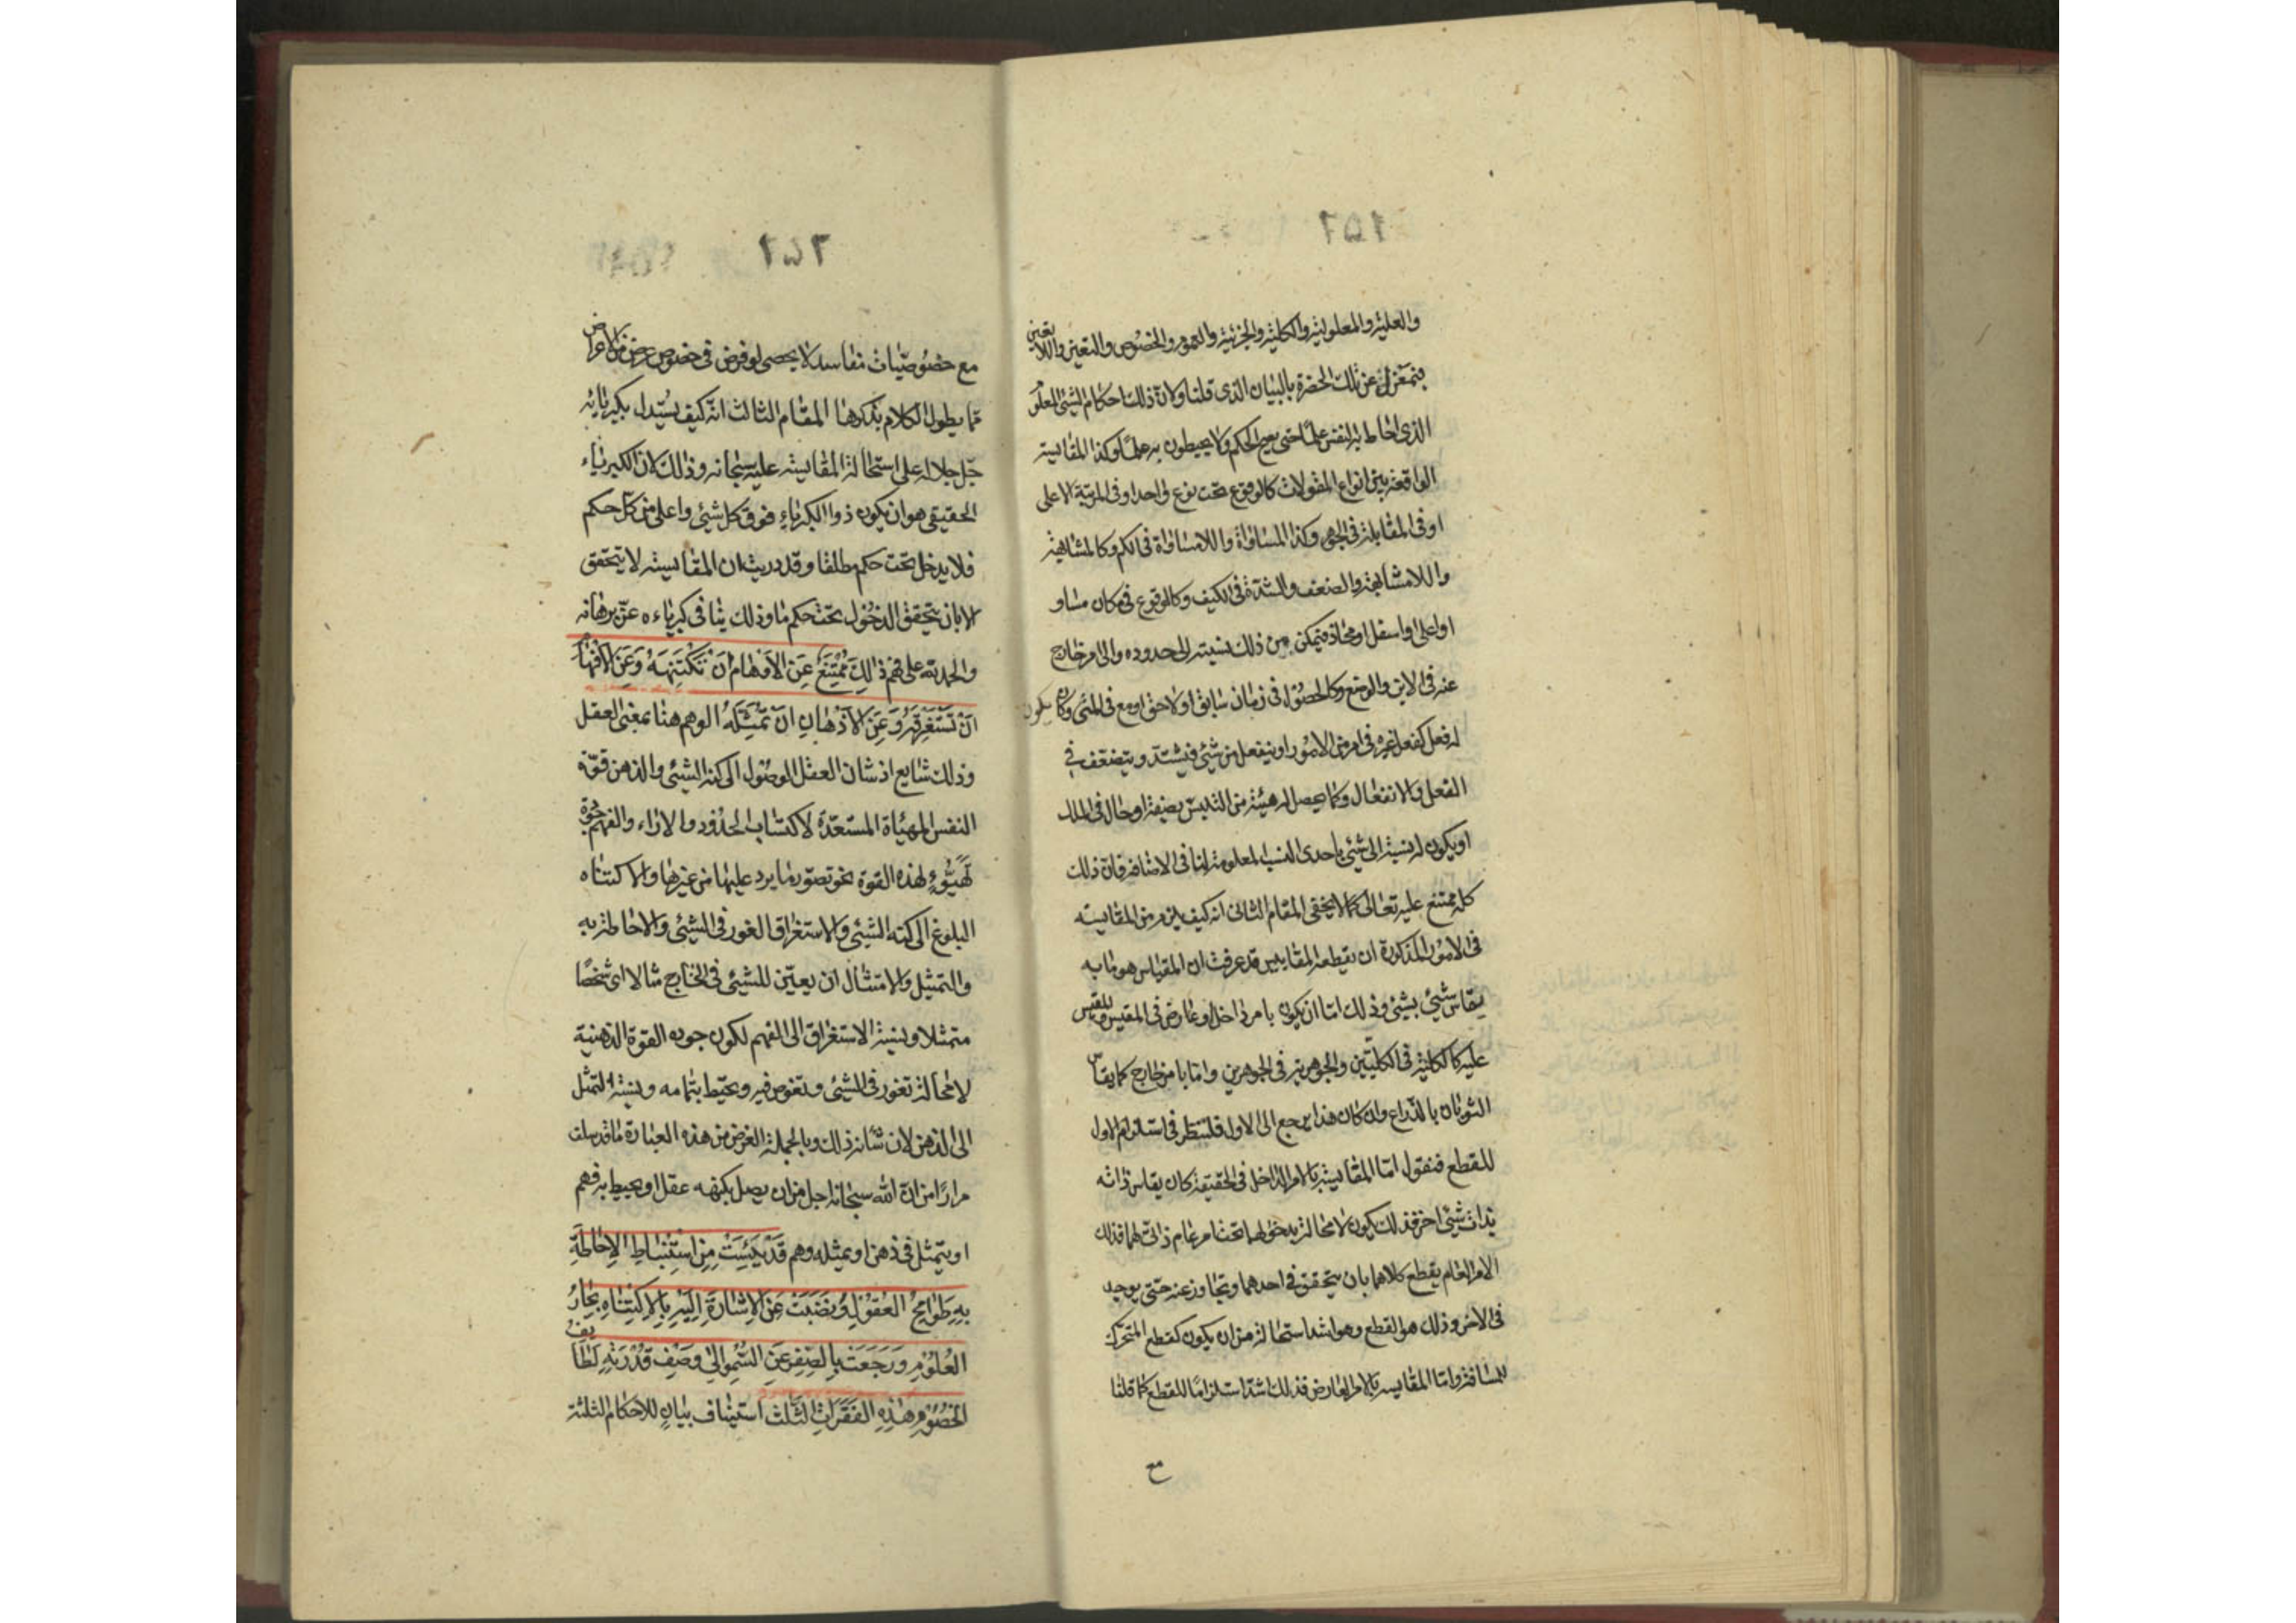 والعلية والمعلولية والكلية والجزئية والعموم والخصوص والتعين واللاتعين
بمعزل عن تلك الحضرة بالبيان الذى قلنا ولان ذلك احكام الشئ المعلوم
الذى احاط به النفس علما حتى يصح الحكم ولا يحيطون به علما وكذا المقايسة
الواقعة بين انواع المقولات كالوقوع تحت نوع واحد او فى المرتبة الاعلى
او فى المقابلة فى الجوهر وكذا المساواة واللامساواة فى الكم وكالمشابهة
واللامشابهة والضعف والشدة فى الكيف وكالوقوع فى مكان مساو
او اعلى او اسفل او محاذ فيتمكن من ذلك نسبته الى حدوده والى امر خارج
عنه فى الاين والوضع وكالحصول فى زمان سابق او لاحق او مع فى المتى وكان يكون
له فعل كفعل غيره فى امر من الامور او ينفعل من شئ فيشتد ويتضعف فى
الفعل والانفعال وكما يحصل له هيئة من التلبس بصفة او حال فى الملك
او يكون له نسبة الى شئ باحدى النسب المعلومة لنا فى الاضافة فان ذلك
كله ممتنع عليه تعالى كما لا يخفى المقام الثانى انه كيف يلزم من المقايسة
فى الامور المذكورة ان يقطعه المقاييس قد عرفت ان المقياس هو ما به
يقاس شئ بشئ وذلك اما ان يكون بامر داخل او عارض فى المقيس والمقيس
عليه كالكلية فى الكليتين والجوهرية فى الجوهرين واما بامر خارج كما يقاس
الثوبان بالذراع وان كان هذا يرجع الى الاول فلننظر فى استلزام الاول
للقطع فنقول اما المقايسة بالامر الداخل فى الحقيقة كان يقاس ذاته
بذات شئ اخر فذلك يكون لا محالة بدخولهما تحت امر عام ذاتى لهما فذلك
الامر العام يقطع كلاهما بان يتحقق فى احدهما ويتجاوز عنه حتى يوجد
فى الاخر وذلك هو القطع وهو اشد استحالة من ان يكون كقطع المتحرك
للمسافة واما المقايسة بالامر العارض فذلك اشد استلزاما للقطع كما قلنا
مع
مع خصوصيات مفاسد لا يحصى لو فرض فى خصوص عرض من الاعراض
مما يطول الكلام بذكرها المقام الثالث انه كيف يستدل بكبريائه
جل جلاله على استحالة المقايسة عليه سبحانه وذلك لان الكبرياء
الحقيقى هو ان يكون ذو الكبرياء فوق كل شئ واعلى من كل حكم
فلا يدخل تحت حكم مطلقا وقد دريت ان المقايسة لا يتحقق
الا بان يتحقق الدخول تحت حكم ما وذلك ينافى كبرياءه عز برهانه
والحمد لله على فهم ذلك مُمْتَنِعٌ عَنِ الأَوْهَامِ أَنْ تَكْتَنِهَهُ وَعَنِ الأَفْهَامِ
أَنْ تَسْتَغْرِقَهُ وَعَنِ الأَذْهَانِ أَنْ تُمَثِّلَهُ الوهم هنا بمعنى العقل
وذلك شايع اذ شان العقل الوصول الى كنه الشئ والذهن قوة
النفس المهيأة المستعدة لاكتساب الحدود والاراء والفهم جودة
تهيؤ لهذه القوة نحو تصور ما يرد عليها من غيرها والاكتناه
البلوغ الى كنه الشئ والاستغراق الغور فى الشئ والاحاطة به
والتمثيل والامتثال ان يعين للشئ فى الخارج مثالا اى شخصا
متمثلا ونسبة الاستغراق الى الفهم لكون جوده القوة الذهنية
لا محالة تغور فى الشئ وتغوص فيه ويحيط بتمامه ونسبة التمثل
الى الذهن لان شانه ذلك وبالجملة الغرض من هذه العبارة ما قد سلف
مرارا من ان الله سبحانه اجل من ان يصل بكنهه عقل او يحيط به فهم
او يتمثل فى ذهن او يمثله وهم قَدْ يَئِسَتْ مِنِ اسْتِنْبَاطِ الإِحَاطَةِ
بِهِ طَوَامِحُ العُقُولِ وَنَضَبَتْ عَنِ الإِشَارَةِ إِلَيْهِ بِالاِكْتِنَاهِ بِحَارُ
العُلُومِ وَرَجَعَتْ بِالصِّغَرِ عَنِ السُّمُوِّ إِلَى وَصْفِ قُدْرَتِهِ لَطَائِفُ
الخُصُومِ هٰذِهِ الفَقَرَاتِ الثَّلٰث استيناف بيان للاحكام الثلثة